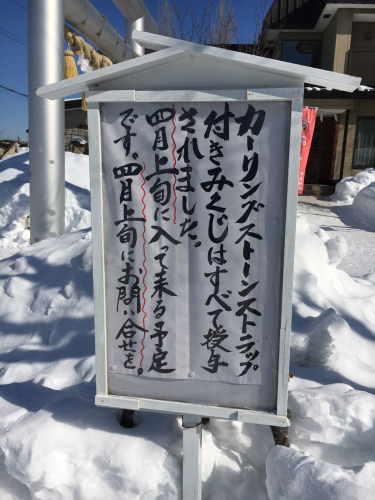 カーリングストーンストラップ
付きみくじはすべて授与
されました。
四月上旬に入って来る予定
です。四月上旬にお問い合せを。